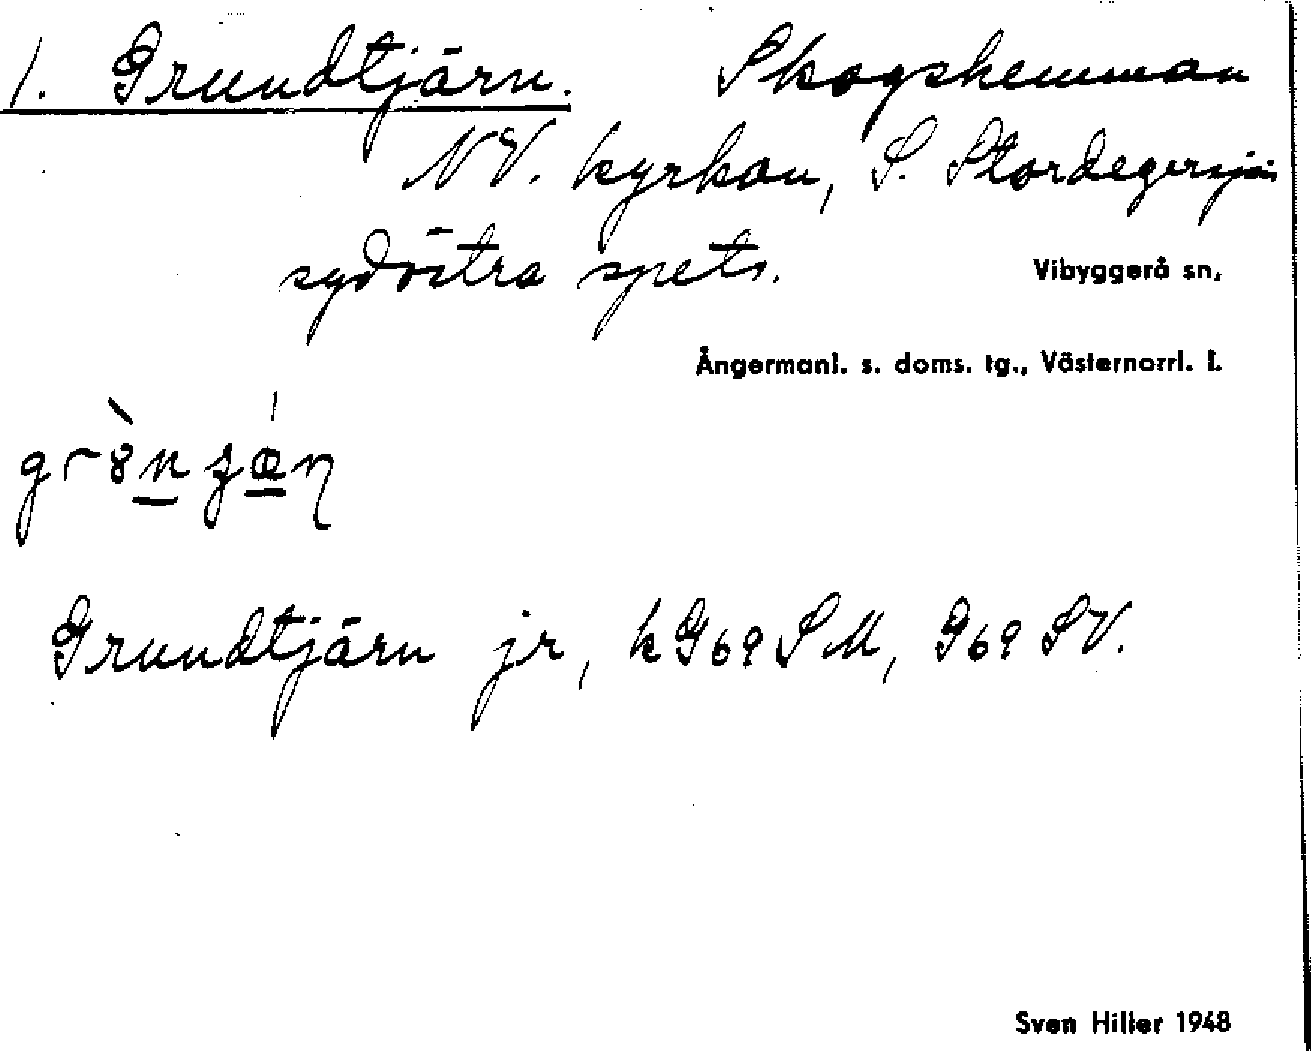 1. Grundtjärn. Skogshemman
NV. kyrkan, S. Stordegersjöns
sydöstra spets.
Vibyggerå sn,
Ångermanl. s. doms. tg., Västernorrl. l.
Grundtjärn jr, k G69 SM, G69 SV.
Sven Hiller 1948